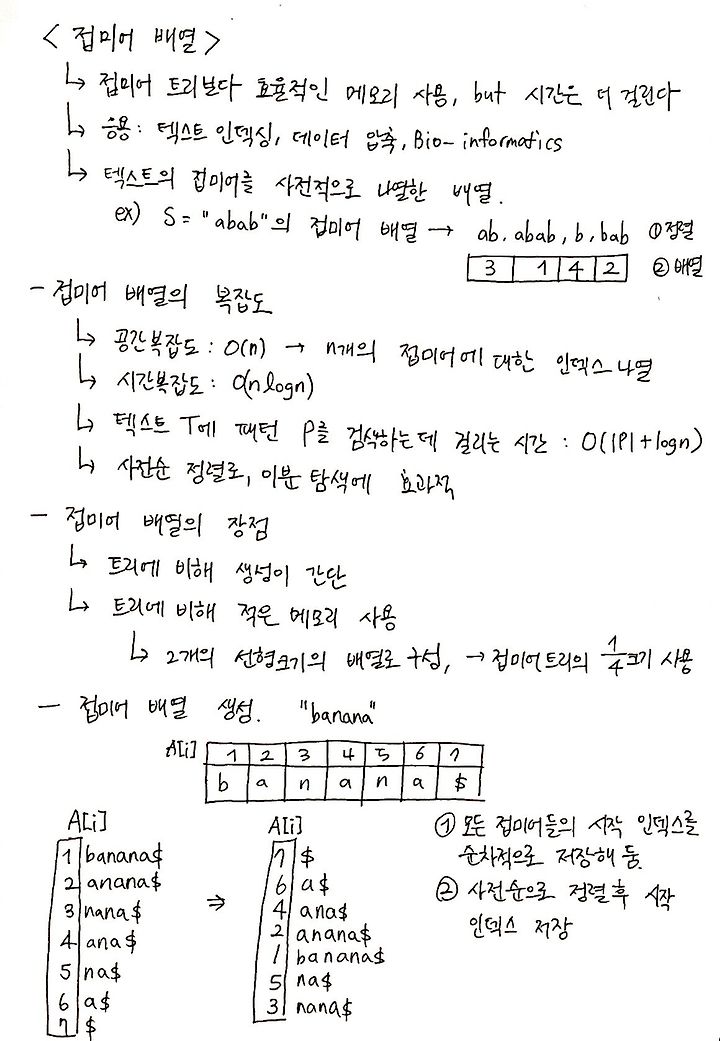 < 접미어 배열 >
↳ 접미어 트리보다 효율적인 메모리 사용, but 시간은 더 걸린다
↳ 응용: 텍스트 인덱싱, 데이터 압축, Bio-informatics
↳ 텍스트의 접미어를 사전적으로 나열한 배열.
ex) S = "abab"의 접미어 배열 → ab, abab, b, bab ①정렬
3 1 4 2 ②배열
- 접미어 배열의 복잡도
↳ 공간복잡도 : O(n) → n개의 접미어에 대한 인덱스 나열
↳ 시간복잡도 : O(nlogn)
↳ 텍스트 T에 패턴 P를 검색하는데 걸리는 시간 : O(|P|+logn)
↳ 사전순 정렬로, 이분 탐색에 효과적
- 접미어 배열의 장점
↳ 트리에 비해 생성이 간단
↳ 트리에 비해 적은 메모리 사용
↳ 2개의 선형크기의 배열로 구성, → 접미어트리의 1/4크기 사용
- 접미어 배열 생성. "banana"
A[i] 1 2 3 4 5 6 7
b a n a n a $
A[i]
1 banana$
2 anana$
3 nana$
4 ana$
5 na$
6 a$
7 $
⇒
A[i]
7 $
6 a$
4 ana$
2 anana$
1 banana$
5 na$
3 nana$
① 모든 접미어들의 시작 인덱스를
순차적으로 저장해 둠.
② 사전순으로 정렬 후 시작
인덱스 저장